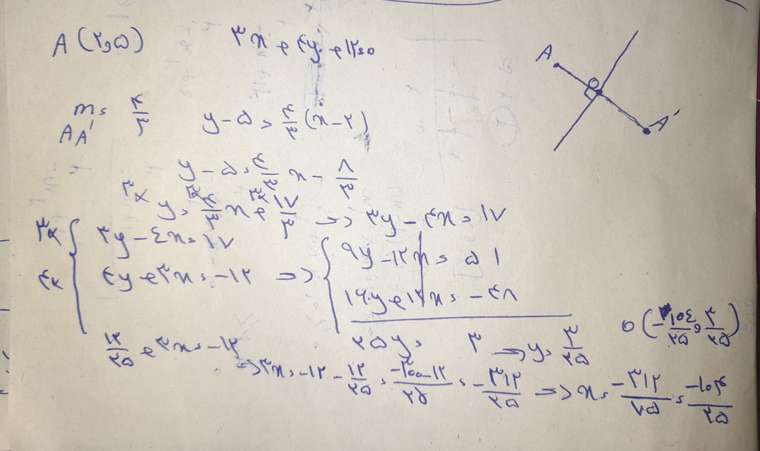 A (۲و۵)    ۳x + ۴y + ۱۲ = ۰
m AA' = ۴/۳    y - ۵ = ۴/۳ (x - ۲)
y - ۵ = ۴/۳ x - ۸/۳
۳× y = ۴/۳ x + ۷/۳ => ۳y - ۴x = ۱۷
۳× ۳y - ۴x = ۱۷ => ۹y - ۱۲x = ۵۱
۴× ۴y + ۳x = -۱۲    ۱۶y + ۱۲x = -۴۸
۲۵y = ۳ => y = ۳/۲۵    O (-۱۰۴/۲۵ و ۳/۲۵)
۱۲/۲۵ + ۳x = -۱۲
=> ۳x = -۱۲ - ۱۲/۲۵ = -۳۰۰-۱۲/۲۵ = -۳۱۲/۲۵ => x = -۳۱۲/۷۵ = -۱۰۴/۲۵
A
O
A'